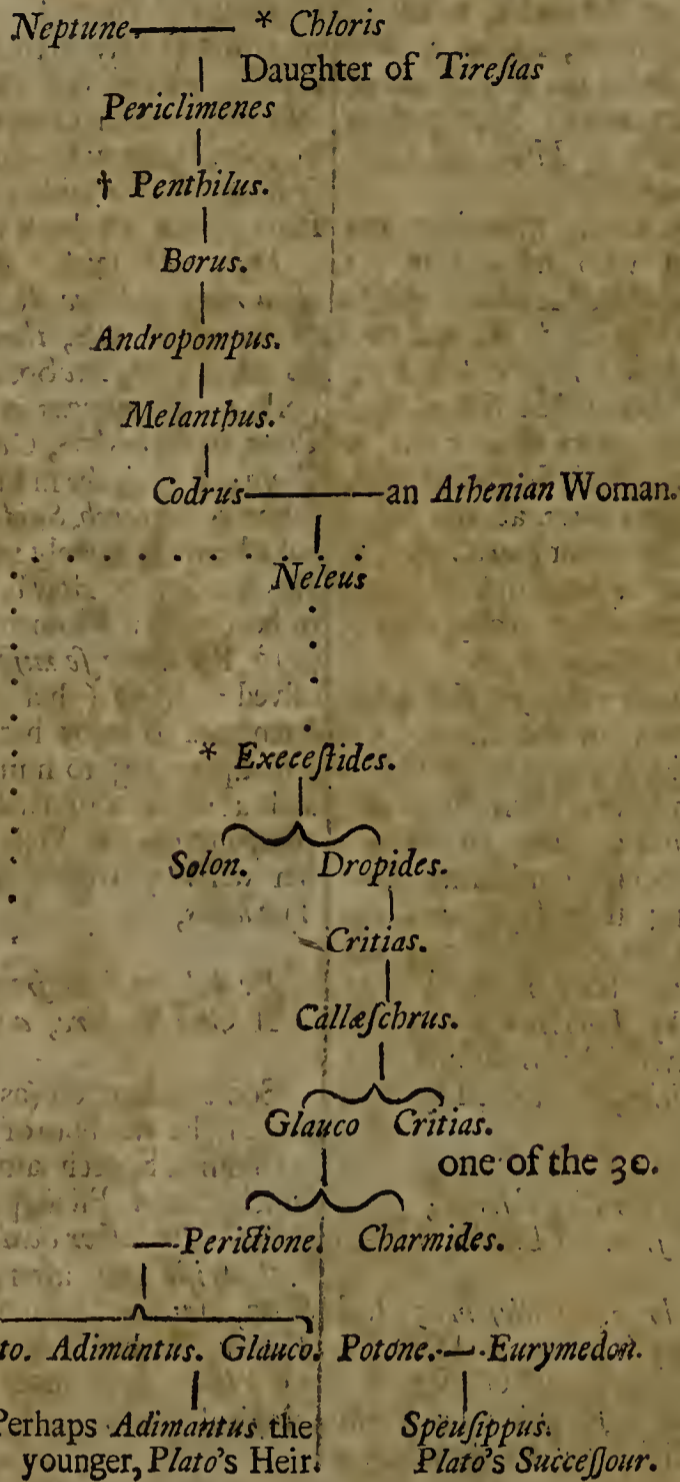 Neptune — * Chloris
Daughter of Tireſias
Periclimenes
† Penthilus.
Borus.
Andropompus.
Melanthus.
Codrus — an Athenian Woman.
Neleus
* Execeſtides.
Solon. Dropides.
Critias.
Callæſchrus.
Glauco Critias.
one of the 30.
— Perictione. Charmides.
to. Adimantus. Glauco. Potone. — Eurymedon.
Perhaps Adimantus the Speuſippus.
younger, Plato's Heir. Plato's Succeſſour.